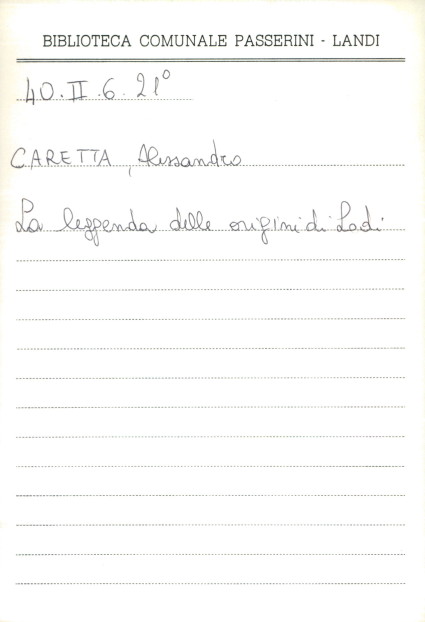 BIBLIOTECA COMUNALE PASSERINI - LANDI
40.II.6.21°
CARETTA, Alessandro
La leggenda delle origini di Lodi